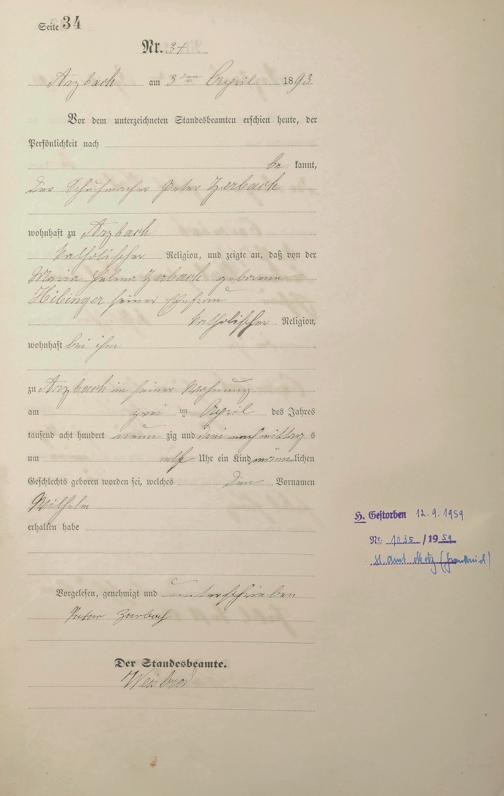 Seite 34
Nr. 34
Arzbach am 3ten April 1893
Vor dem unterzeichneten Standesbeamten erschien heute, der
Persönlichkeit nach
be kannt,
der Schuhmacher Peter Zerbach
wohnhaft zu Arzbach
katholischer Religion, und zeigte an, daß von der
Maria Zerbach geborene
Hibinger seiner Ehefrau
katholischer Religion,
wohnhaft bei ihm
zu Arzbach in seiner Wohnung
am zwei ten April des Jahres
tausend acht hundert neun zig und drei nachmittag s
um elf Uhr ein Kind männlichen
Geschlechts geboren worden sei, welches den Vornamen
Wilhelm
erhalten habe
Vorgelesen, genehmigt und unterschrieben
Peter Zerbach
Der Standesbeamte.
H. Gestorben 12.9.1959
Nr. 1035/1959
St. Amt Metz (Frankreich)